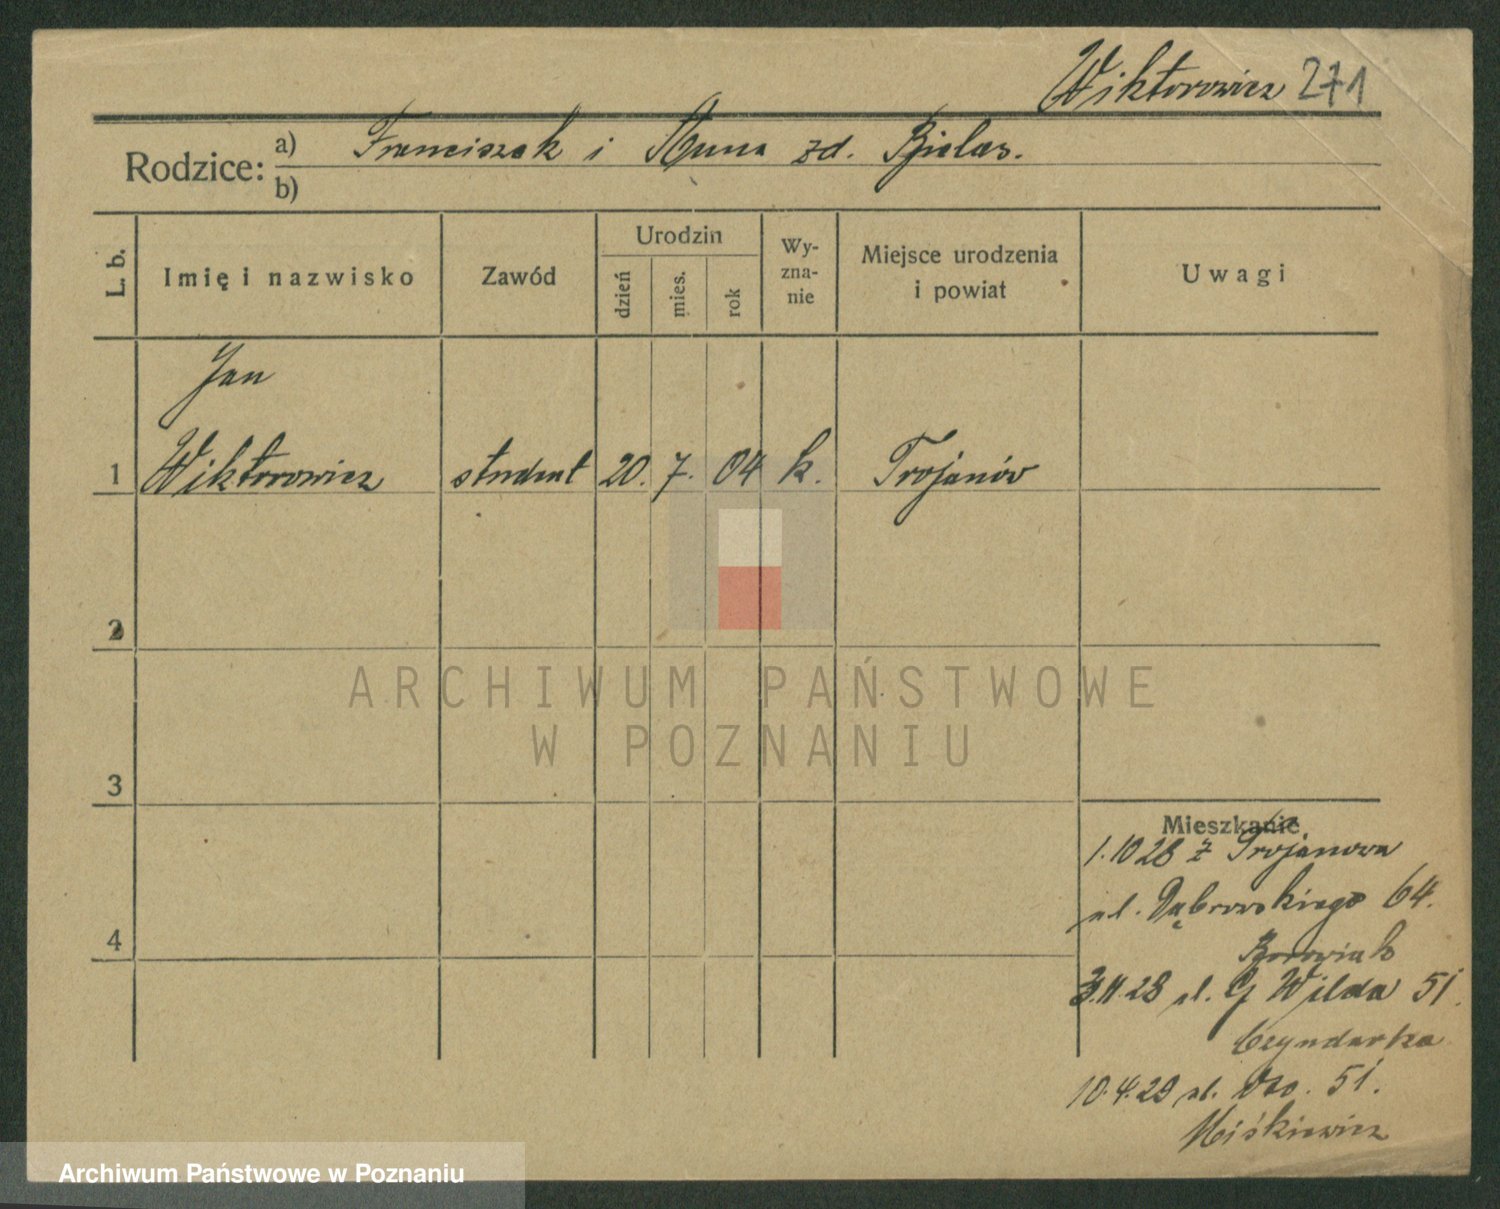 Wiktorowicz 271
Rodzice: a) Franciszek i Anna zd. Bielas.
b)
L. b.
Imię i nazwisko
Zawód
Urodzin
dzień
mies.
rok
Wy-
zna-
nie
Miejsce urodzenia
i powiat
Uwagi
Jan
1 Wiktorowicz student 20. 7. 04 k. Trojanów
2
3
4
Mieszkanie
1.10 28 z Trojanowa
ul. Dąbrowskiego 64.
Borowiak
3.11.28 ul. G Wilda 51.
Czyndarka
10.4.29 ul. 51.
Miśkiewicz
ARCHIWUM PAŃSTWOWE
W POZNANIU
Archiwum Państwowe w Poznaniu